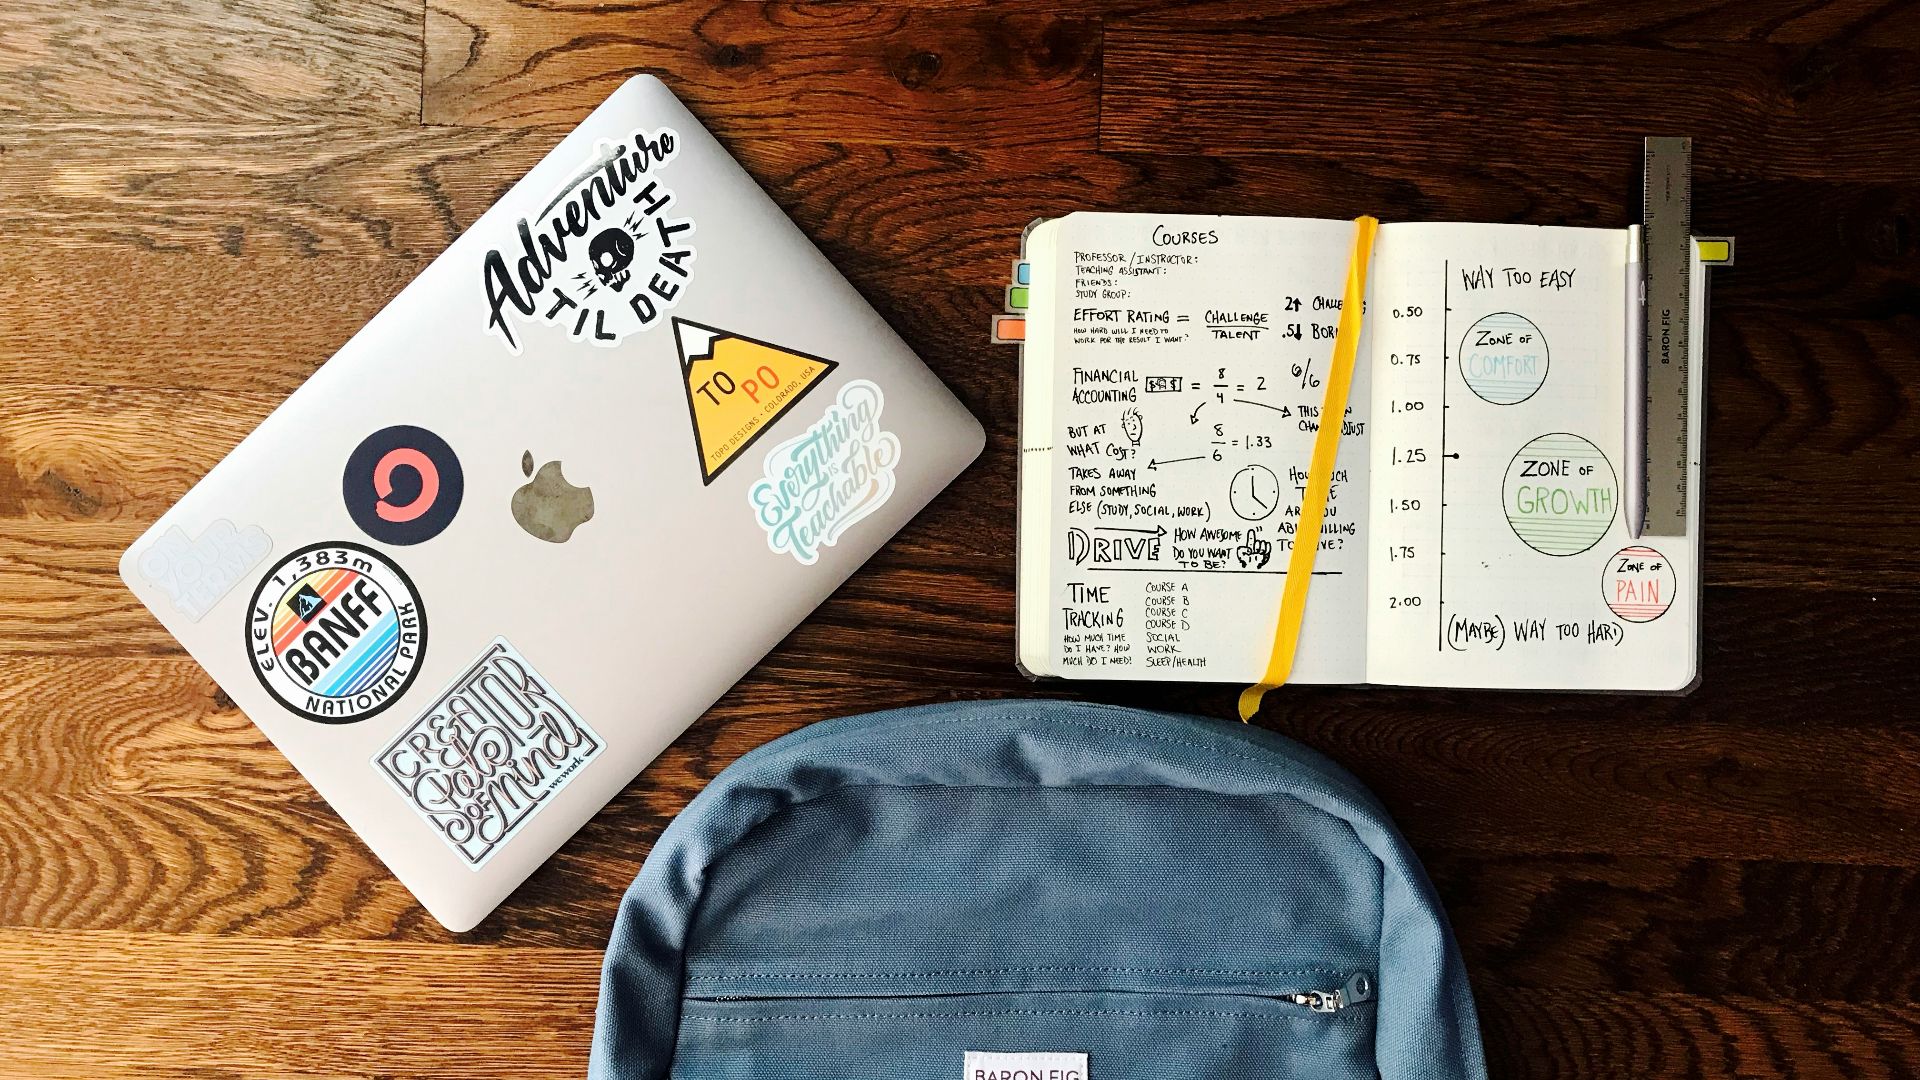 Adventure
TIL DEATH
TOPO
TOPO DESIGNS · COLORADO, USA
Everything
is
Teachable
ON
YOUR
TERMS
ELEV. 1,383m
BANFF
NATIONAL PARK
CREATOR
State
OF Mind
wework
COURSES
PROFESSOR / INSTRUCTOR:
TEACHING ASSISTANT:
FRIENDS:
STUDY GROUP:
EFFORT RATING = CHALLENGE
TALENT
HOW HARD WILL I NEED TO
WORK FOR THE RESULT I WANT?
2↑
.5↓
FINANCIAL
ACCOUNTING = 8/4 = 2
6/6
THIS
BUT AT
WHAT COST?
8/6 = 1.33
TAKES AWAY
FROM SOMETHING
ELSE (STUDY, SOCIAL, WORK)
HOW MUCH
DRIVE
HOW AWESOME
DO YOU WANT
TO BE?
TIME
TRACKING
HOW MUCH TIME
DO I HAVE? HOW
MUCH DO I NEED!
COURSE A
COURSE B
COURSE C
COURSE D
SOCIAL
WORK
SLEEP/HEALTH
WAY TOO EASY
0.50
0.75
1.00
1.25
1.50
1.75
2.00
ZONE OF
COMFORT
ZONE OF
GROWTH
ZONE OF
PAIN
(MAYBE) WAY TOO HARD
BARON FIG
BARON FIG